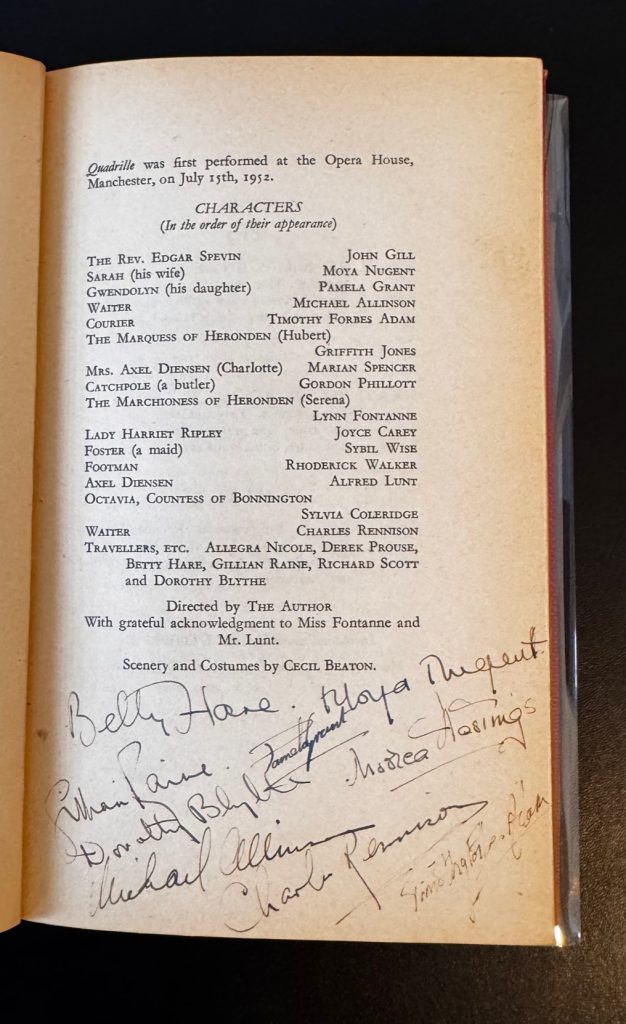 Quadrille was first performed at the Opera House,
Manchester, on July 15th, 1952.
CHARACTERS
(In the order of their appearance)
The Rev. Edgar Spevin John Gill
Sarah (his wife) Moya Nugent
Gwendolyn (his daughter) Pamela Grant
Waiter Michael Allinson
Courier Timothy Forbes Adam
The Marquess of Heronden (Hubert)
Griffith Jones
Mrs. Axel Diensen (Charlotte) Marian Spencer
Catchpole (a butler) Gordon Phillott
The Marchioness of Heronden (Serena)
Lynn Fontanne
Lady Harriet Ripley Joyce Carey
Foster (a maid) Sybil Wise
Footman Rhoderick Walker
Axel Diensen Alfred Lunt
Octavia, Countess of Bonnington
Sylvia Coleridge
Waiter Charles Rennison
Travellers, etc. Allegra Nicole, Derek Prouse,
Betty Hare, Gillian Raine, Richard Scott
and Dorothy Blythe
Directed by The Author
With grateful acknowledgment to Miss Fontanne and
Mr. Lunt.
Scenery and Costumes by Cecil Beaton.
Betty Hare. Moya Nugent.
Gillian Raine. Pamela Grant
Dorothy Blythe Moorea Hastings
Michael Allinson Charles Rennison
Timothy Forbes Adam